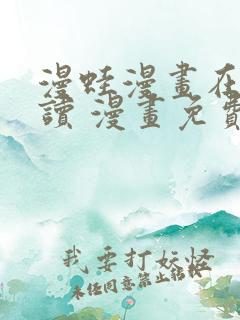 漫蛙漫畫在
讀 漫畫免費
我要打妖怪
未經同意禁止轉載